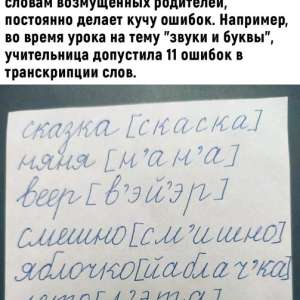 словам возмущенных родителей,
постоянно делает кучу ошибок. Например,
во время урока на тему "звуки и буквы",
учительница допустила 11 ошибок в
транскрипции слов.
сказка [скаска]
няня [н'ан'а]
веер [в'эй'эр]
смешно [см'ишно]
яблочко [йаблач'ка]